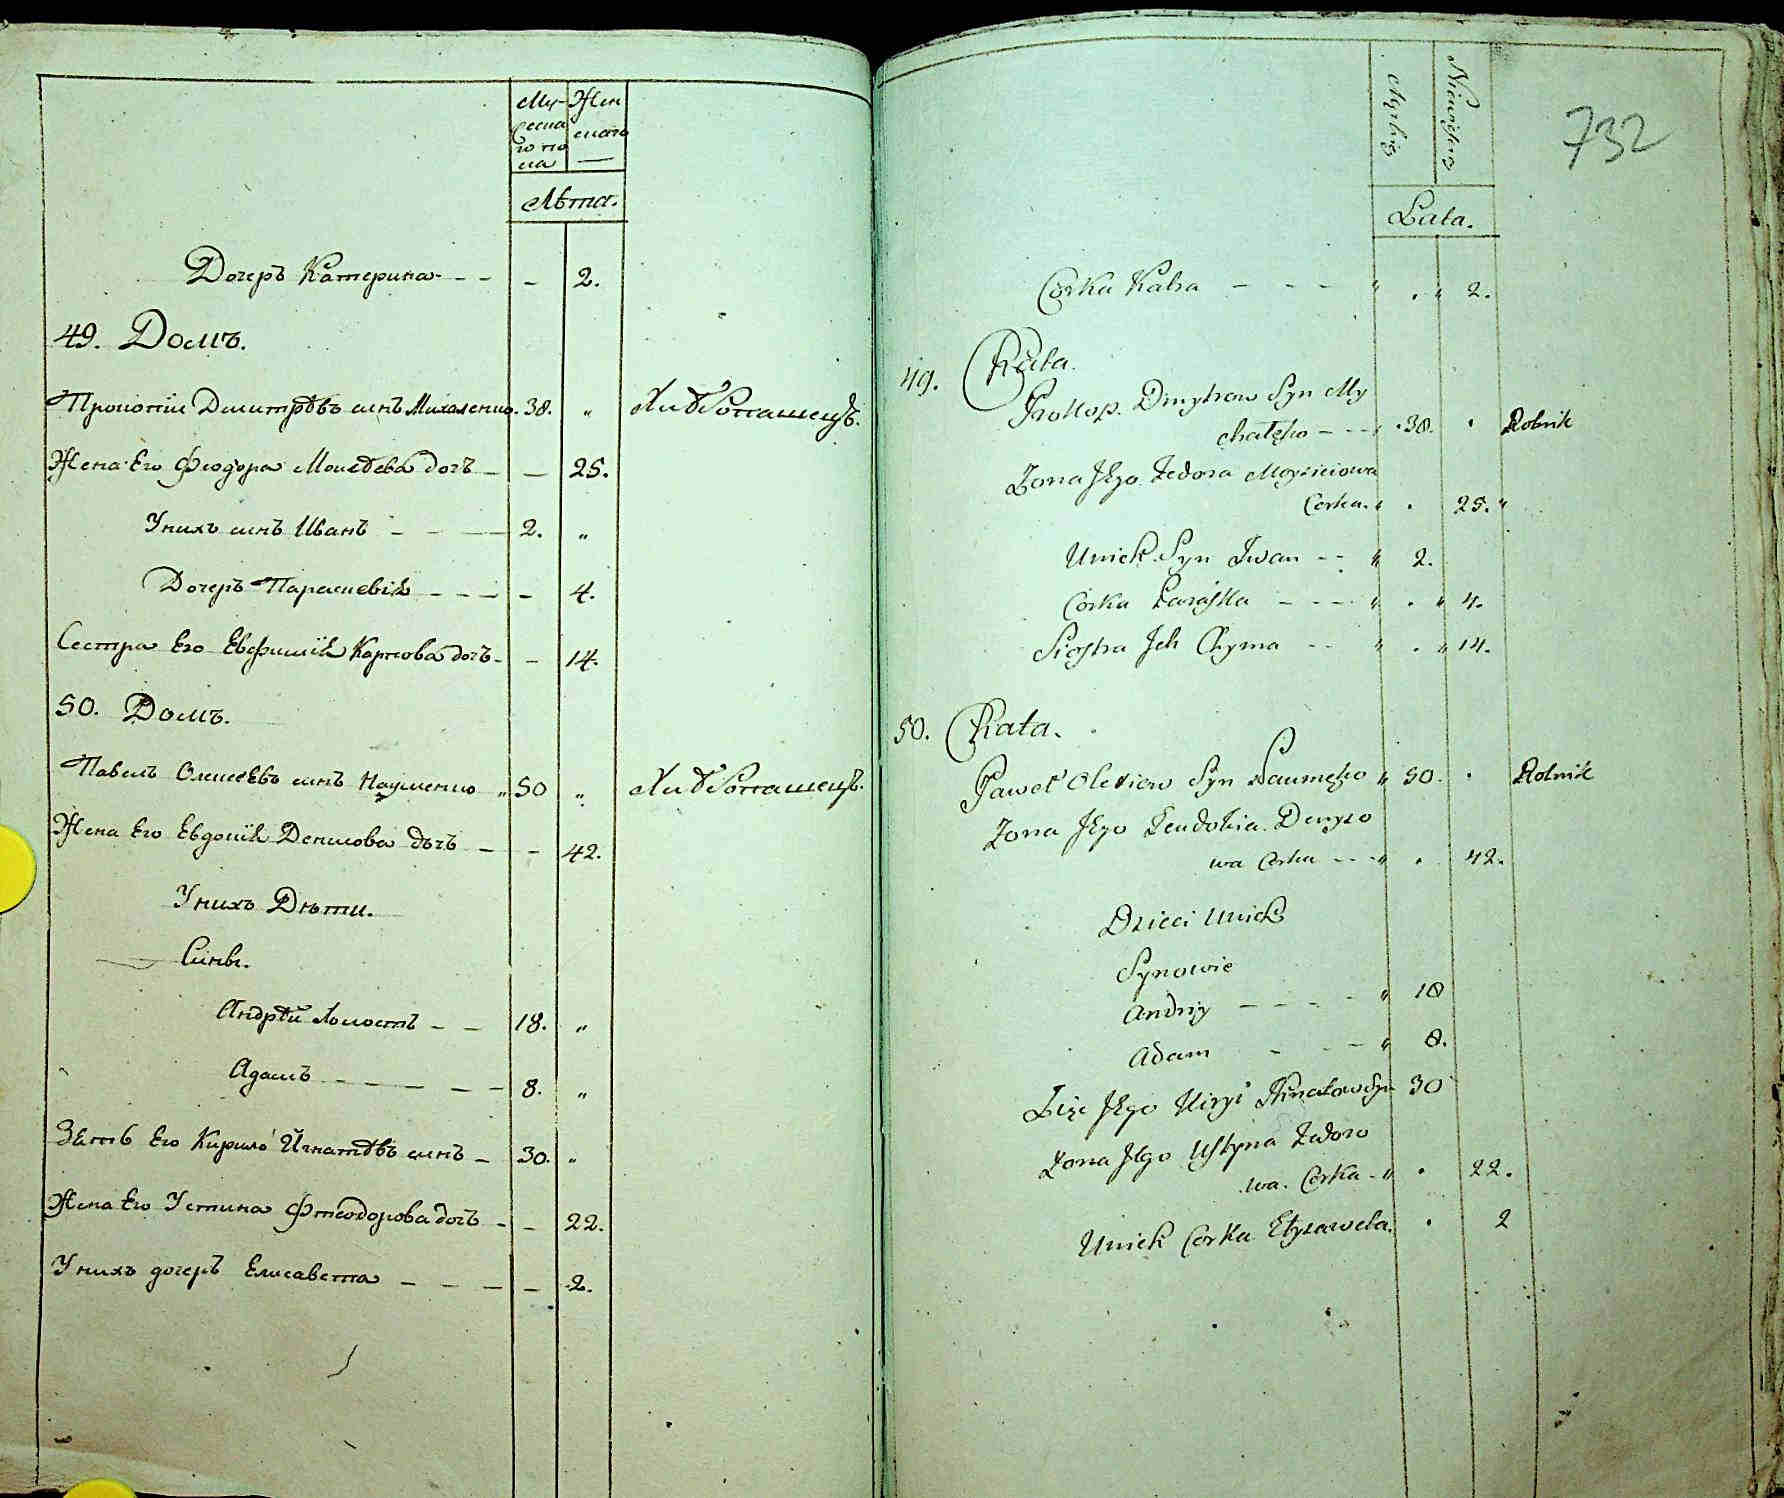 Му-
Женскаго
Лѣта.
Дочеръ Катерина - - - 2.
49. Домъ.
Прокопій Дмитрѣвъ синъ Михаленко. 38. „ Хлѣбопашецъ.
Жена Его Феодора Моисѣева дочъ - - 25.
Унихъ синъ Иванъ - - - 2. „
Дочеръ Параскевія - - - - 4.
Сестра Его Евфимія Карпова дочъ - - 14.
50. Домъ.
Павелъ Олексѣевъ синъ Науменко „ 50 „ Хлѣбопашецъ.
Жена Его Евдокія Денисова дочъ - - 42.
Унихъ Дѣти.
Сини.
Андрѣй Холостъ - - 18. „
Адамъ - - - - - 8. „
Зять Его Кирило Игнатѣвъ синъ - 30. „
Жена Его Устина Фтеодорова дочъ - - 22.
Унихъ дочеръ Елисавета - - - - 2.
732
Męzkiey
Niewieskiey
Lata.
Corka Katra - - - „ . „ 2.
49. Chata.
Prokop Dmytrow Syn My
chalęko - - - 38. . Rolnik
Zona Jego Fedora Moysieiowa
Corka. „ . 25. „
Unich Syn Iwan - - „ 2.
Corka Paraska - - - „ . „ 4.
Siostra Jch Chyma - - „ . „ 14.
50. Chata.
Paweł Olexiow Syn Naumęko „ 50. . Rolnik
Zona Jego Jeudokia Denyso
wa Corka - - „ . 42.
Dzieci Unich
Synowie
Andrzy - - - - „ 18
Adam - - - „ 8.
Zięc Jego Kirył Hnatow Syn 30
Zona Jego Ustyna Fedoro
wa. Corka - „ . 22.
Unich Corka Elyzaweta. . 2